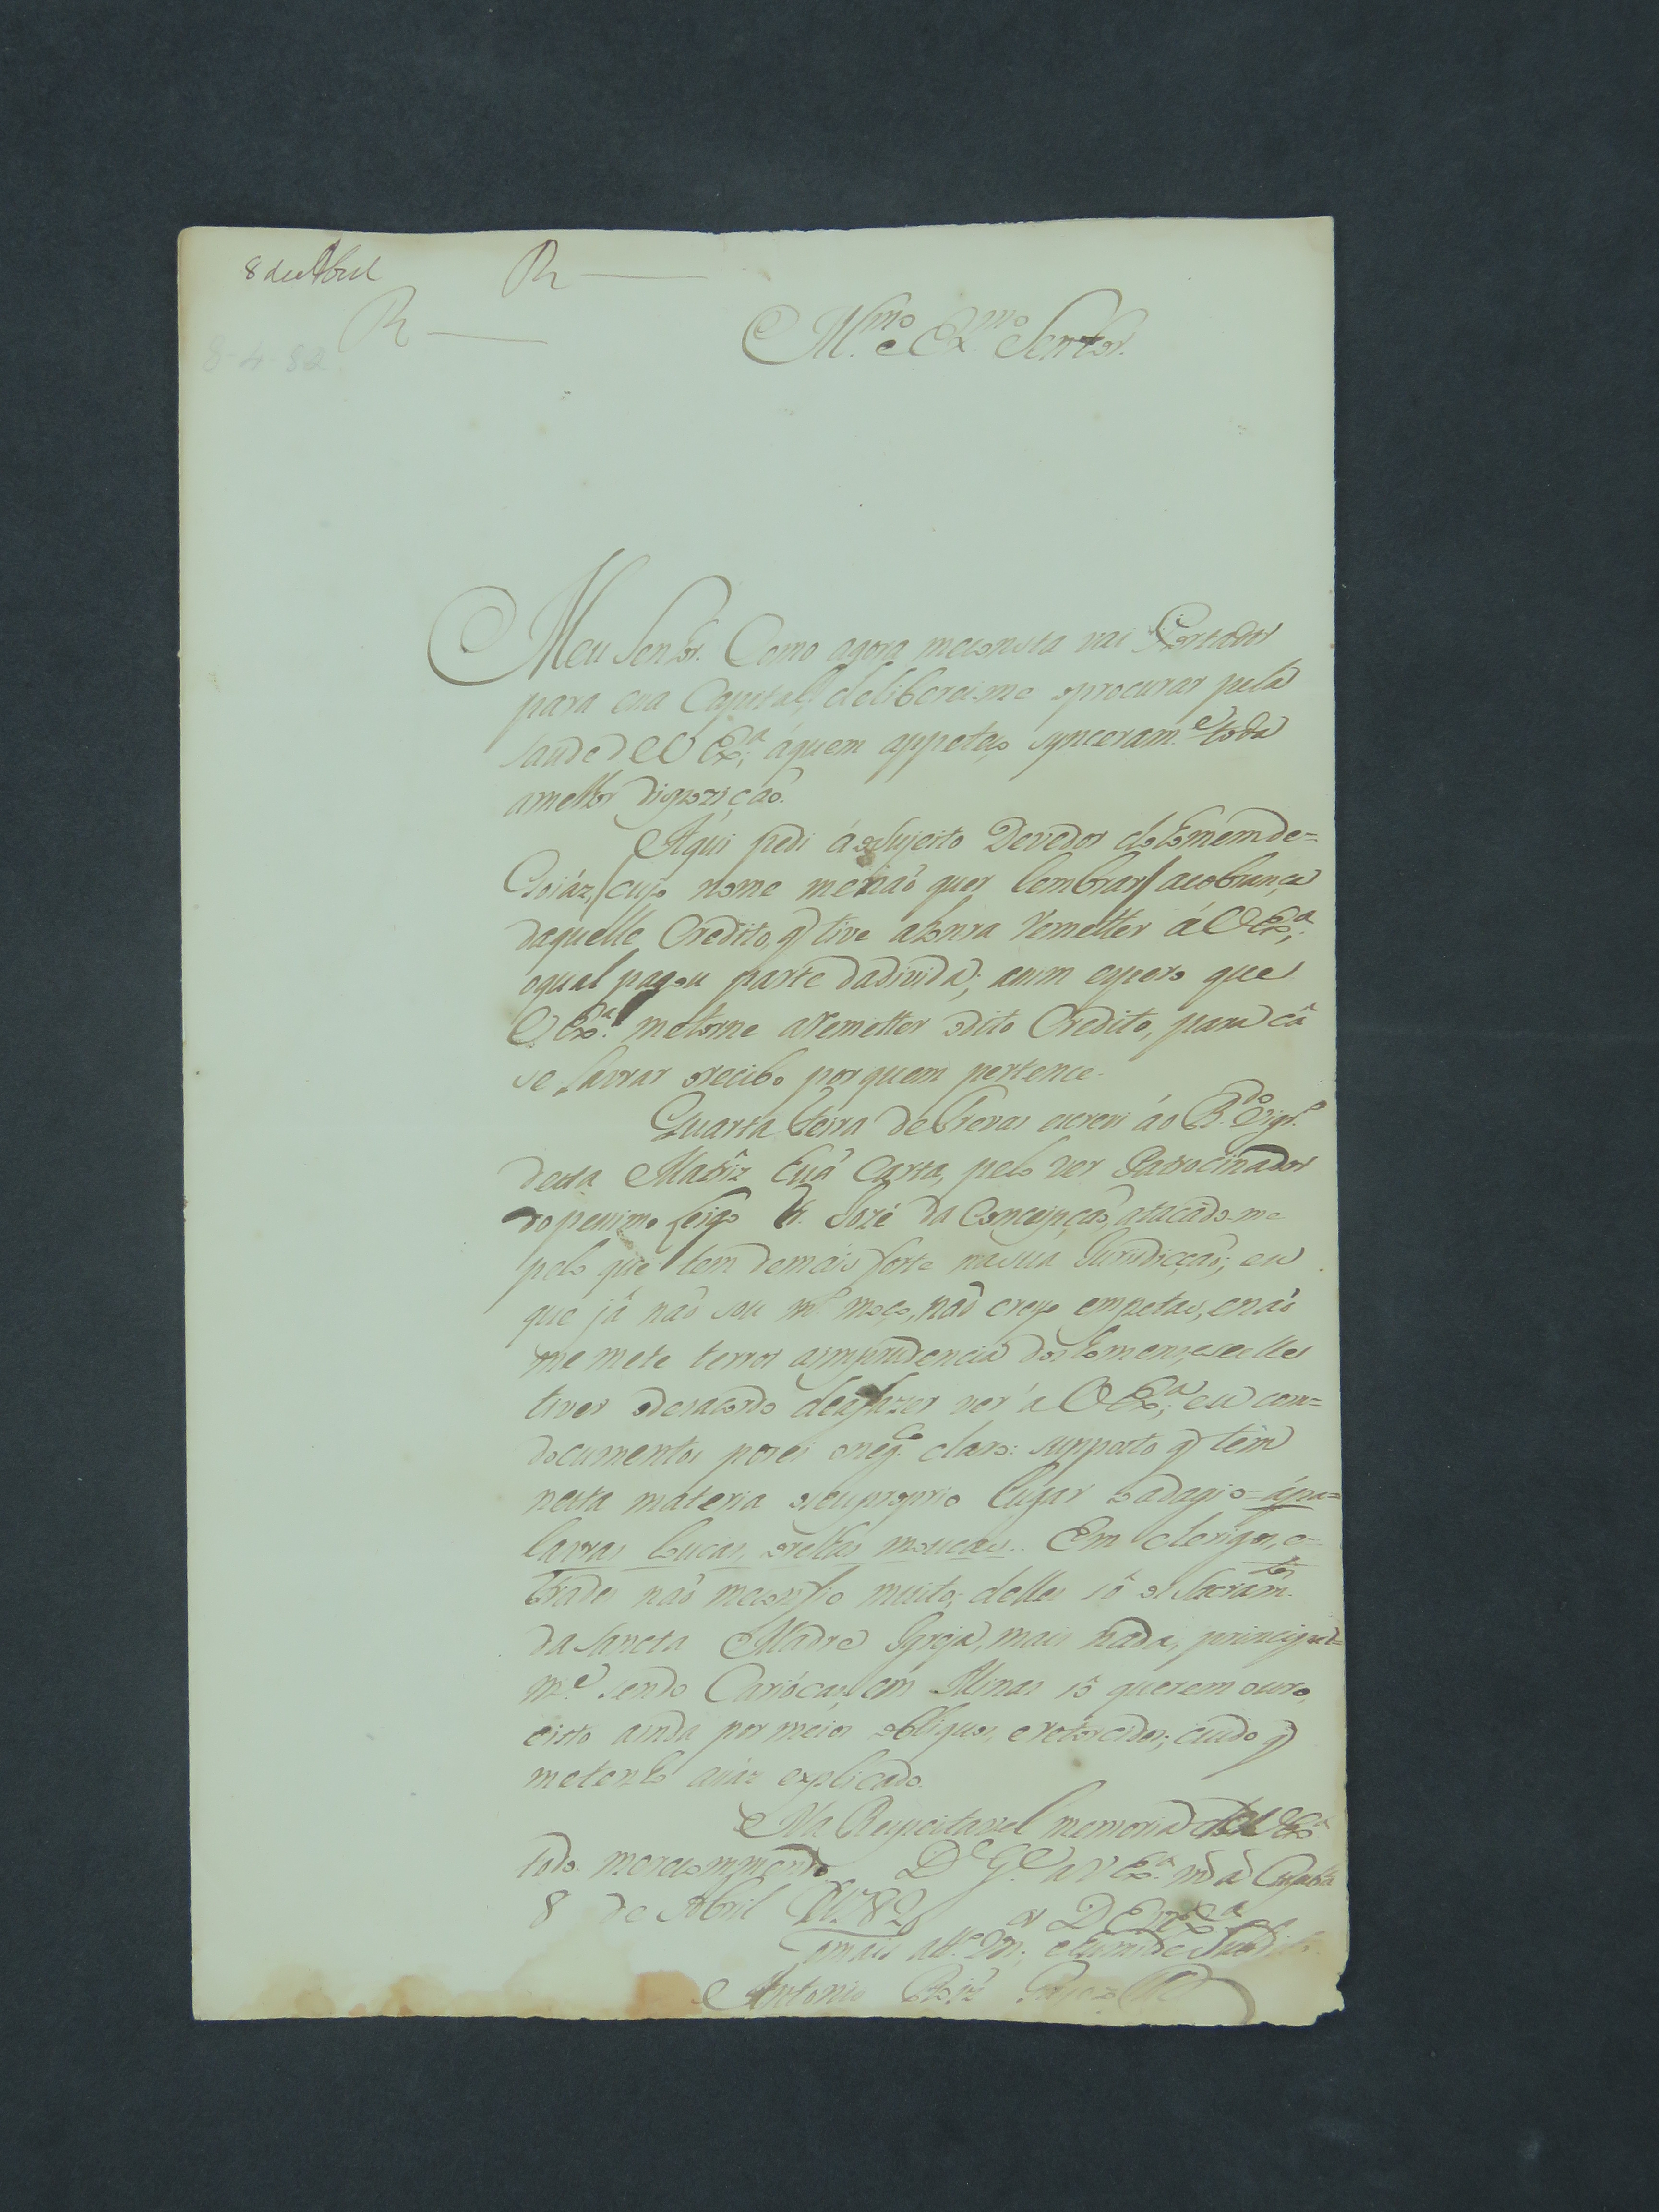 8 de Abril
R
R
8-4-82
Ill.mo e Ex.mo Senhor.
Meu Senhor. Como agora meconsta vai Portador
para essa Capital, deliberei-me aprocurar pela
saude de V Ex.a, áquem appeteço synceram.e toda
amelhor dispozição.
Aqui pedi áo Sujeito Devedor do homem de=
Goiáz, /cujo nome menão quer lembrar/ acobrança
daquelle Credito, q tive ahonra remetter á V Ex.a;
oqual pagou parte dadivida; assim espero que
V Ex.a metorne aremetter odito Credito, para cá
se Lavrar orecibo por quem pertence.
Quarta feira de Trevas escrevi áo R.do Vigr.o
desta Matriz huã Carta, pelo ver Patrocinador
do pessimo Leigo Fr. Jozé da Conceipção, atacádo-me
pelo que tem demáis forte nasua Jurisdicção; eu
que já não sou m.to moço, não creyo empetas, enão
me mete terror aimprudencia dos homens, eseelles
tiver odesacordo deafazer ver á V Ex.a, eu com=
documentos porei oneg.o claro: supposto q tem
nesta materia oseuproprio lugar o adagio = ápa=
lavras loucas, orelhas moucas. Em clerigos, e=
frades não meconfio muito; delles só os Sacram.tos
da Sancta Madre Igreja, mais nada, principal=
m.e sendo Cariócas, em Minas só querem ouro,
eisto ainda por meios obliquos, eretorcidos; cuido q
metenho assáz explicado.
Na Respeitavel memoria de V Ex.a
todo merecommendo. D.s G.e a V Ex.a
8 de Abril 1782
De V Ex.a
Antonio